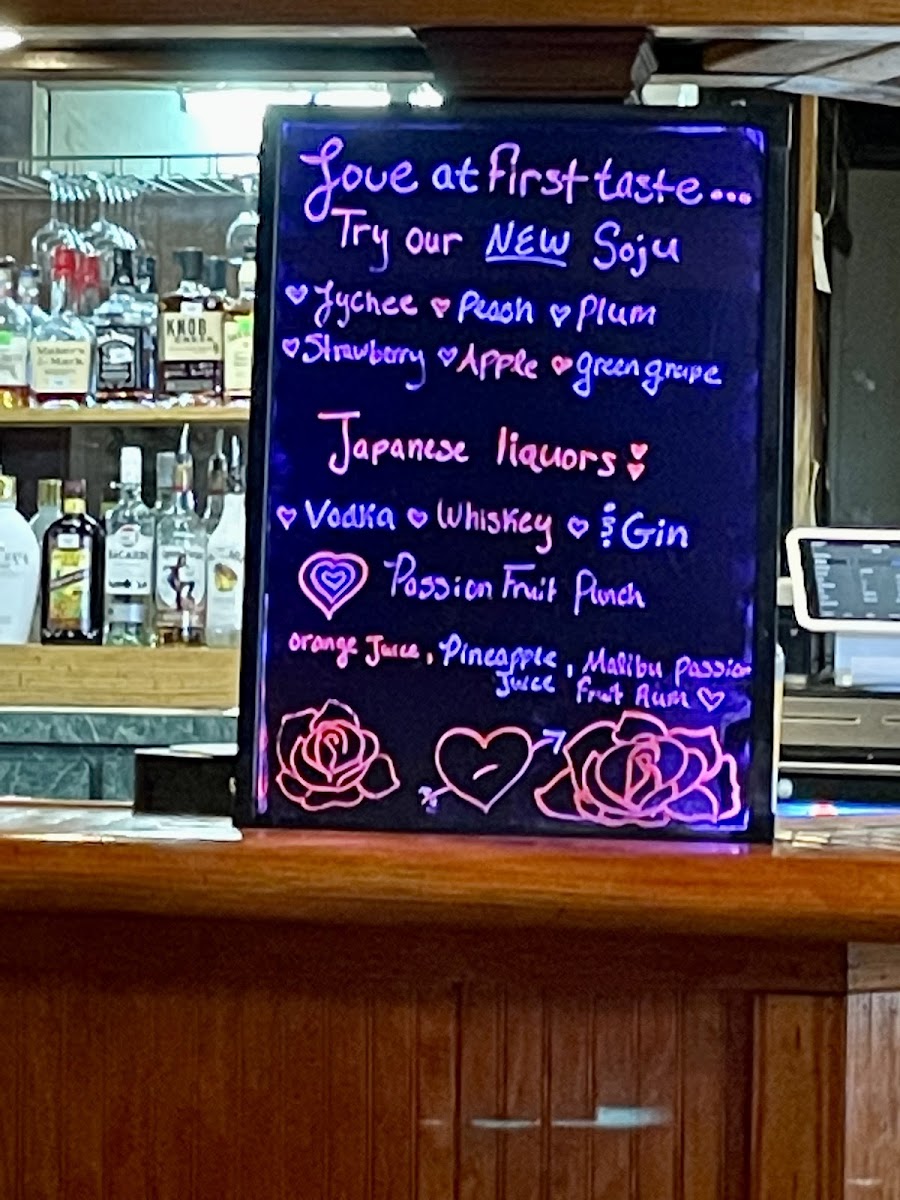 Love at first taste...
Try our NEW Soju
Lychee Peach Plum
Strawberry Apple green grape
Japanese liquors
Vodka Whiskey & Gin
Passion Fruit Punch
orange Juice, Pineapple Juice, Malibu passion
Fruit Rum
KNOB CREEK
Maker's Mark
BACARDI